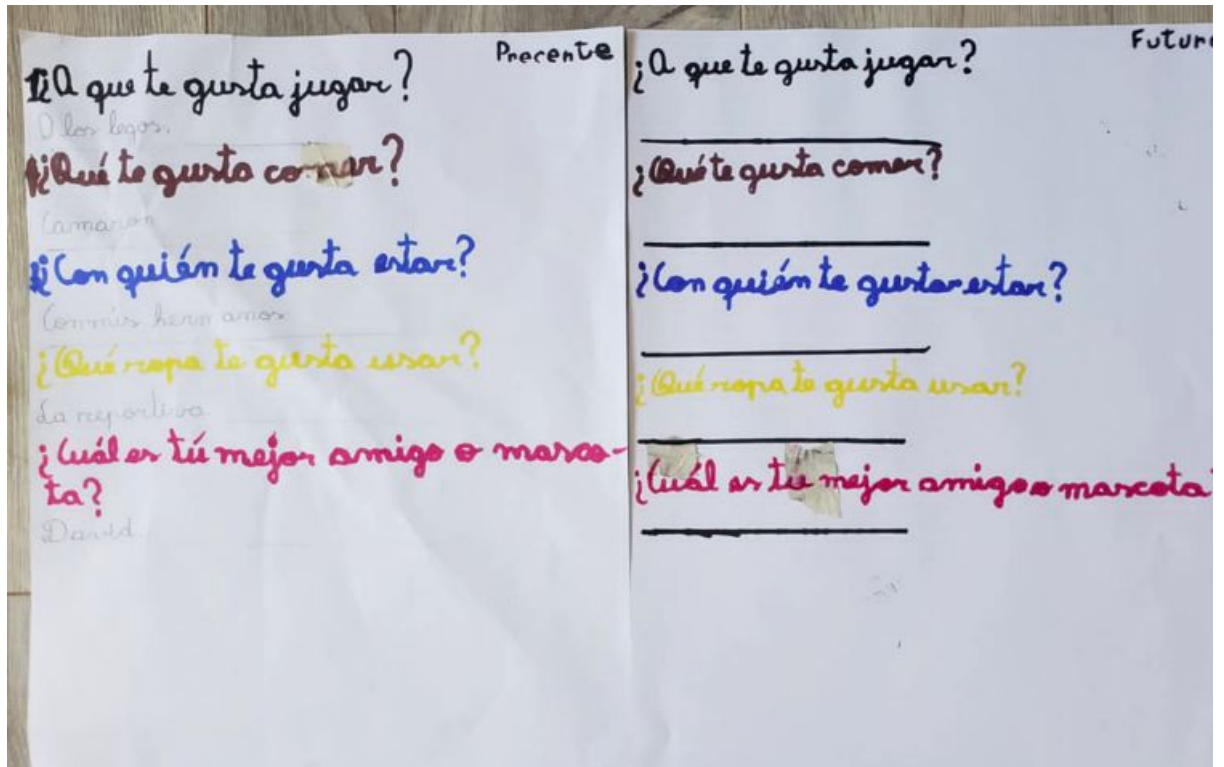 Precente
1¿A que te gusta jugar?
A los legos.
¿Qué te gusta comer?
Camaron
¿Con quién te gusta estar?
Con mis hermanos
¿Qué ropa te gusta usar?
La reportiva
¿Cuál es tú mejor amigo o masco-
ta?
David
Futuro
¿A que te gusta jugar?
¿Qué te gusta comer?
¿Con quién te gustar estar?
¿Qué ropa te gusta usar?
¿Cuál es tu mejor amigo o mascota?